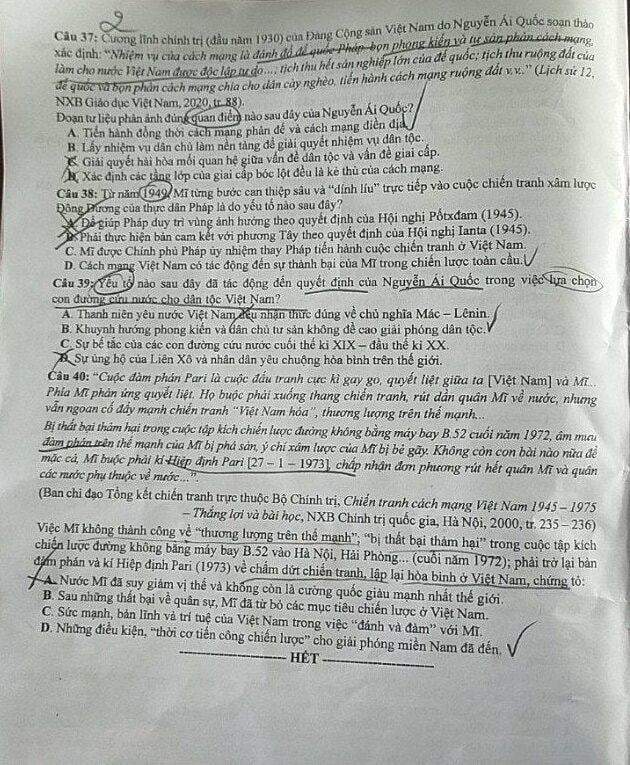 2
Câu 37: Cương lĩnh chính trị (đầu năm 1930) của Đảng Cộng sản Việt Nam do Nguyễn Ái Quốc soạn thảo
xác định: “Nhiệm vụ của cách mạng là đánh đổ đế quốc Pháp, bọn phong kiến và tư sản phản cách mạng,
làm cho nước Việt Nam được độc lập tự do…; tịch thu hết sản nghiệp lớn của đế quốc; tịch thu ruộng đất của
đế quốc và bọn phản cách mạng chia cho dân cày nghèo, tiến hành cách mạng ruộng đất v.v..” (Lịch sử 12,
NXB Giáo dục Việt Nam, 2020, tr. 88).
Đoạn tư liệu phản ánh đúng quan điểm nào sau đây của Nguyễn Ái Quốc?
A. Tiến hành đồng thời cách mạng phản đế và cách mạng điền địa.
B. Lấy nhiệm vụ dân chủ làm nền tảng để giải quyết nhiệm vụ dân tộc.
C. Giải quyết hài hòa mối quan hệ giữa vấn đề dân tộc và vấn đề giai cấp.
D. Xác định các tầng lớp của giai cấp bóc lột đều là kẻ thù của cách mạng.
Câu 38: Từ năm 1949, Mĩ từng bước can thiệp sâu và “dính líu” trực tiếp vào cuộc chiến tranh xâm lược
Đông Dương của thực dân Pháp là do yếu tố nào sau đây?
A. Để giúp Pháp duy trì vùng ảnh hưởng theo quyết định của Hội nghị Pốtxđam (1945).
B. Phải thực hiện bản cam kết với phương Tây theo quyết định của Hội nghị Ianta (1945).
C. Mĩ được Chính phủ Pháp ủy nhiệm thay Pháp tiến hành cuộc chiến tranh ở Việt Nam.
D. Cách mạng Việt Nam có tác động đến sự thành bại của Mĩ trong chiến lược toàn cầu.
Câu 39: Yếu tố nào sau đây đã tác động đến quyết định của Nguyễn Ái Quốc trong việc lựa chọn
con đường cứu nước cho dân tộc Việt Nam?
A. Thanh niên yêu nước Việt Nam đều nhận thức đúng về chủ nghĩa Mác – Lênin.
B. Khuynh hướng phong kiến và dân chủ tư sản không đề cao giải phóng dân tộc.
C. Sự bế tắc của các con đường cứu nước cuối thế kỉ XIX – đầu thế kỉ XX.
D. Sự ủng hộ của Liên Xô và nhân dân yêu chuộng hòa bình trên thế giới.
Câu 40: “Cuộc đàm phán Pari là cuộc đấu tranh cực kì gay go, quyết liệt giữa ta [Việt Nam] và Mĩ...
Phía Mĩ phản ứng quyết liệt. Họ buộc phải xuống thang chiến tranh, rút dần quân Mĩ về nước, nhưng
vẫn ngoan cố đẩy mạnh chiến tranh “Việt Nam hóa”, thương lượng trên thế mạnh...
Bị thất bại thảm hại trong cuộc tập kích chiến lược đường không bằng máy bay B.52 cuối năm 1972, âm mưu
đàm phán trên thế mạnh của Mĩ bị phá sản, ý chí xâm lược của Mĩ bị bẻ gãy. Không còn con bài nào nữa để
mặc cả, Mĩ buộc phải kí Hiệp định Pari [27 – 1 – 1973], chấp nhận đơn phương rút hết quân Mĩ và quân
các nước phụ thuộc về nước...”.
(Ban chỉ đạo Tổng kết chiến tranh trực thuộc Bộ Chính trị, Chiến tranh cách mạng Việt Nam 1945 – 1975
– Thắng lợi và bài học, NXB Chính trị quốc gia, Hà Nội, 2000, tr. 235 – 236)
Việc Mĩ không thành công về “thương lượng trên thế mạnh”; “bị thất bại thảm hại” trong cuộc tập kích
chiến lược đường không bằng máy bay B.52 vào Hà Nội, Hải Phòng... (cuối năm 1972); phải trở lại bàn
đàm phán và kí Hiệp định Pari (1973) về chấm dứt chiến tranh, lập lại hòa bình ở Việt Nam, chứng tỏ:
A. Nước Mĩ đã suy giảm vị thế và không còn là cường quốc giàu mạnh nhất thế giới.
B. Sau những thất bại về quân sự, Mĩ đã từ bỏ các mục tiêu chiến lược ở Việt Nam.
C. Sức mạnh, bản lĩnh và trí tuệ của Việt Nam trong việc “đánh và đàm” với Mĩ.
D. Những điều kiện, “thời cơ tiến công chiến lược” cho giải phóng miền Nam đã đến.
HẾT